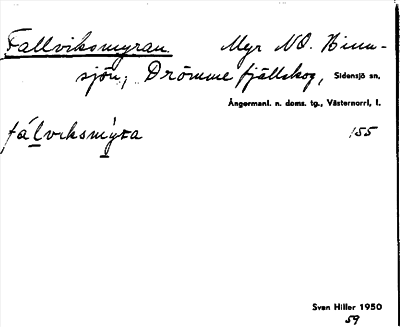 Fallviksmyran Myr NO. Binn-
sjön, Drömme fjällskog, Sidensjö sn,
Ångermanl. n. doms. tg., Västernorrl, l.
fálviksmỳra 155
Sven Hiller 1950
59